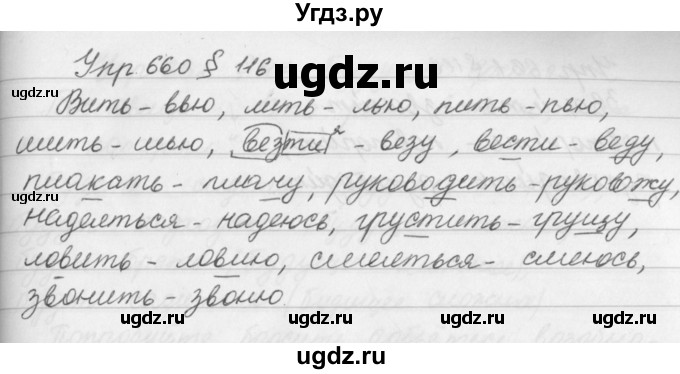 Угдз.ру
Упр 660 § 116
Вить - вью, лить - лью, пить - пью,
шить - шью, везти² - везу, вести - веду,
плакать - плачу, руководить - руковожу,
надеяться - надеюсь, грустить - грущу,
ловить - ловлю, смеяться - смеюсь,
звонить - звоню.
ugdz.ru
ugdz.ru
ugdz.ru
ugdz.ru
ugdz.ru
ugdz.ru
ugdz.ru
ugdz.ru
ugdz.ru
ugdz.ru